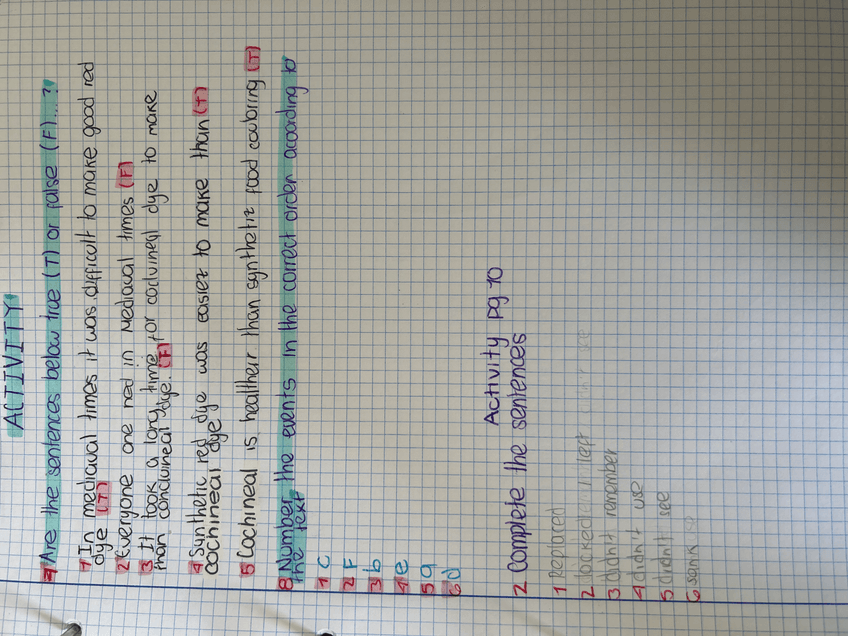 ACTIVITY
7 Are the sentences below true (T) or false (F)...?
1 In mediaval times it was difficult to make good red
dye (T)
2 Everyone one red in Mediaval times (F)
3 It took a long time for cochineal dye to make
than conchineal dye. (F)
4 Synthetic red dye was easier to make than (T)
cochineal dye
5 Cochineal is healtheir than synthetic food coubring (T)
8 Number the events in the correct order according to
the text
1 c
2 F
3 b
4 e
5 a
6 d
Activity pg 10
2 complete the sentences
1 Replared
2 locked left
3 didn't remember
4 didn't use
5 didn't see
6 sank